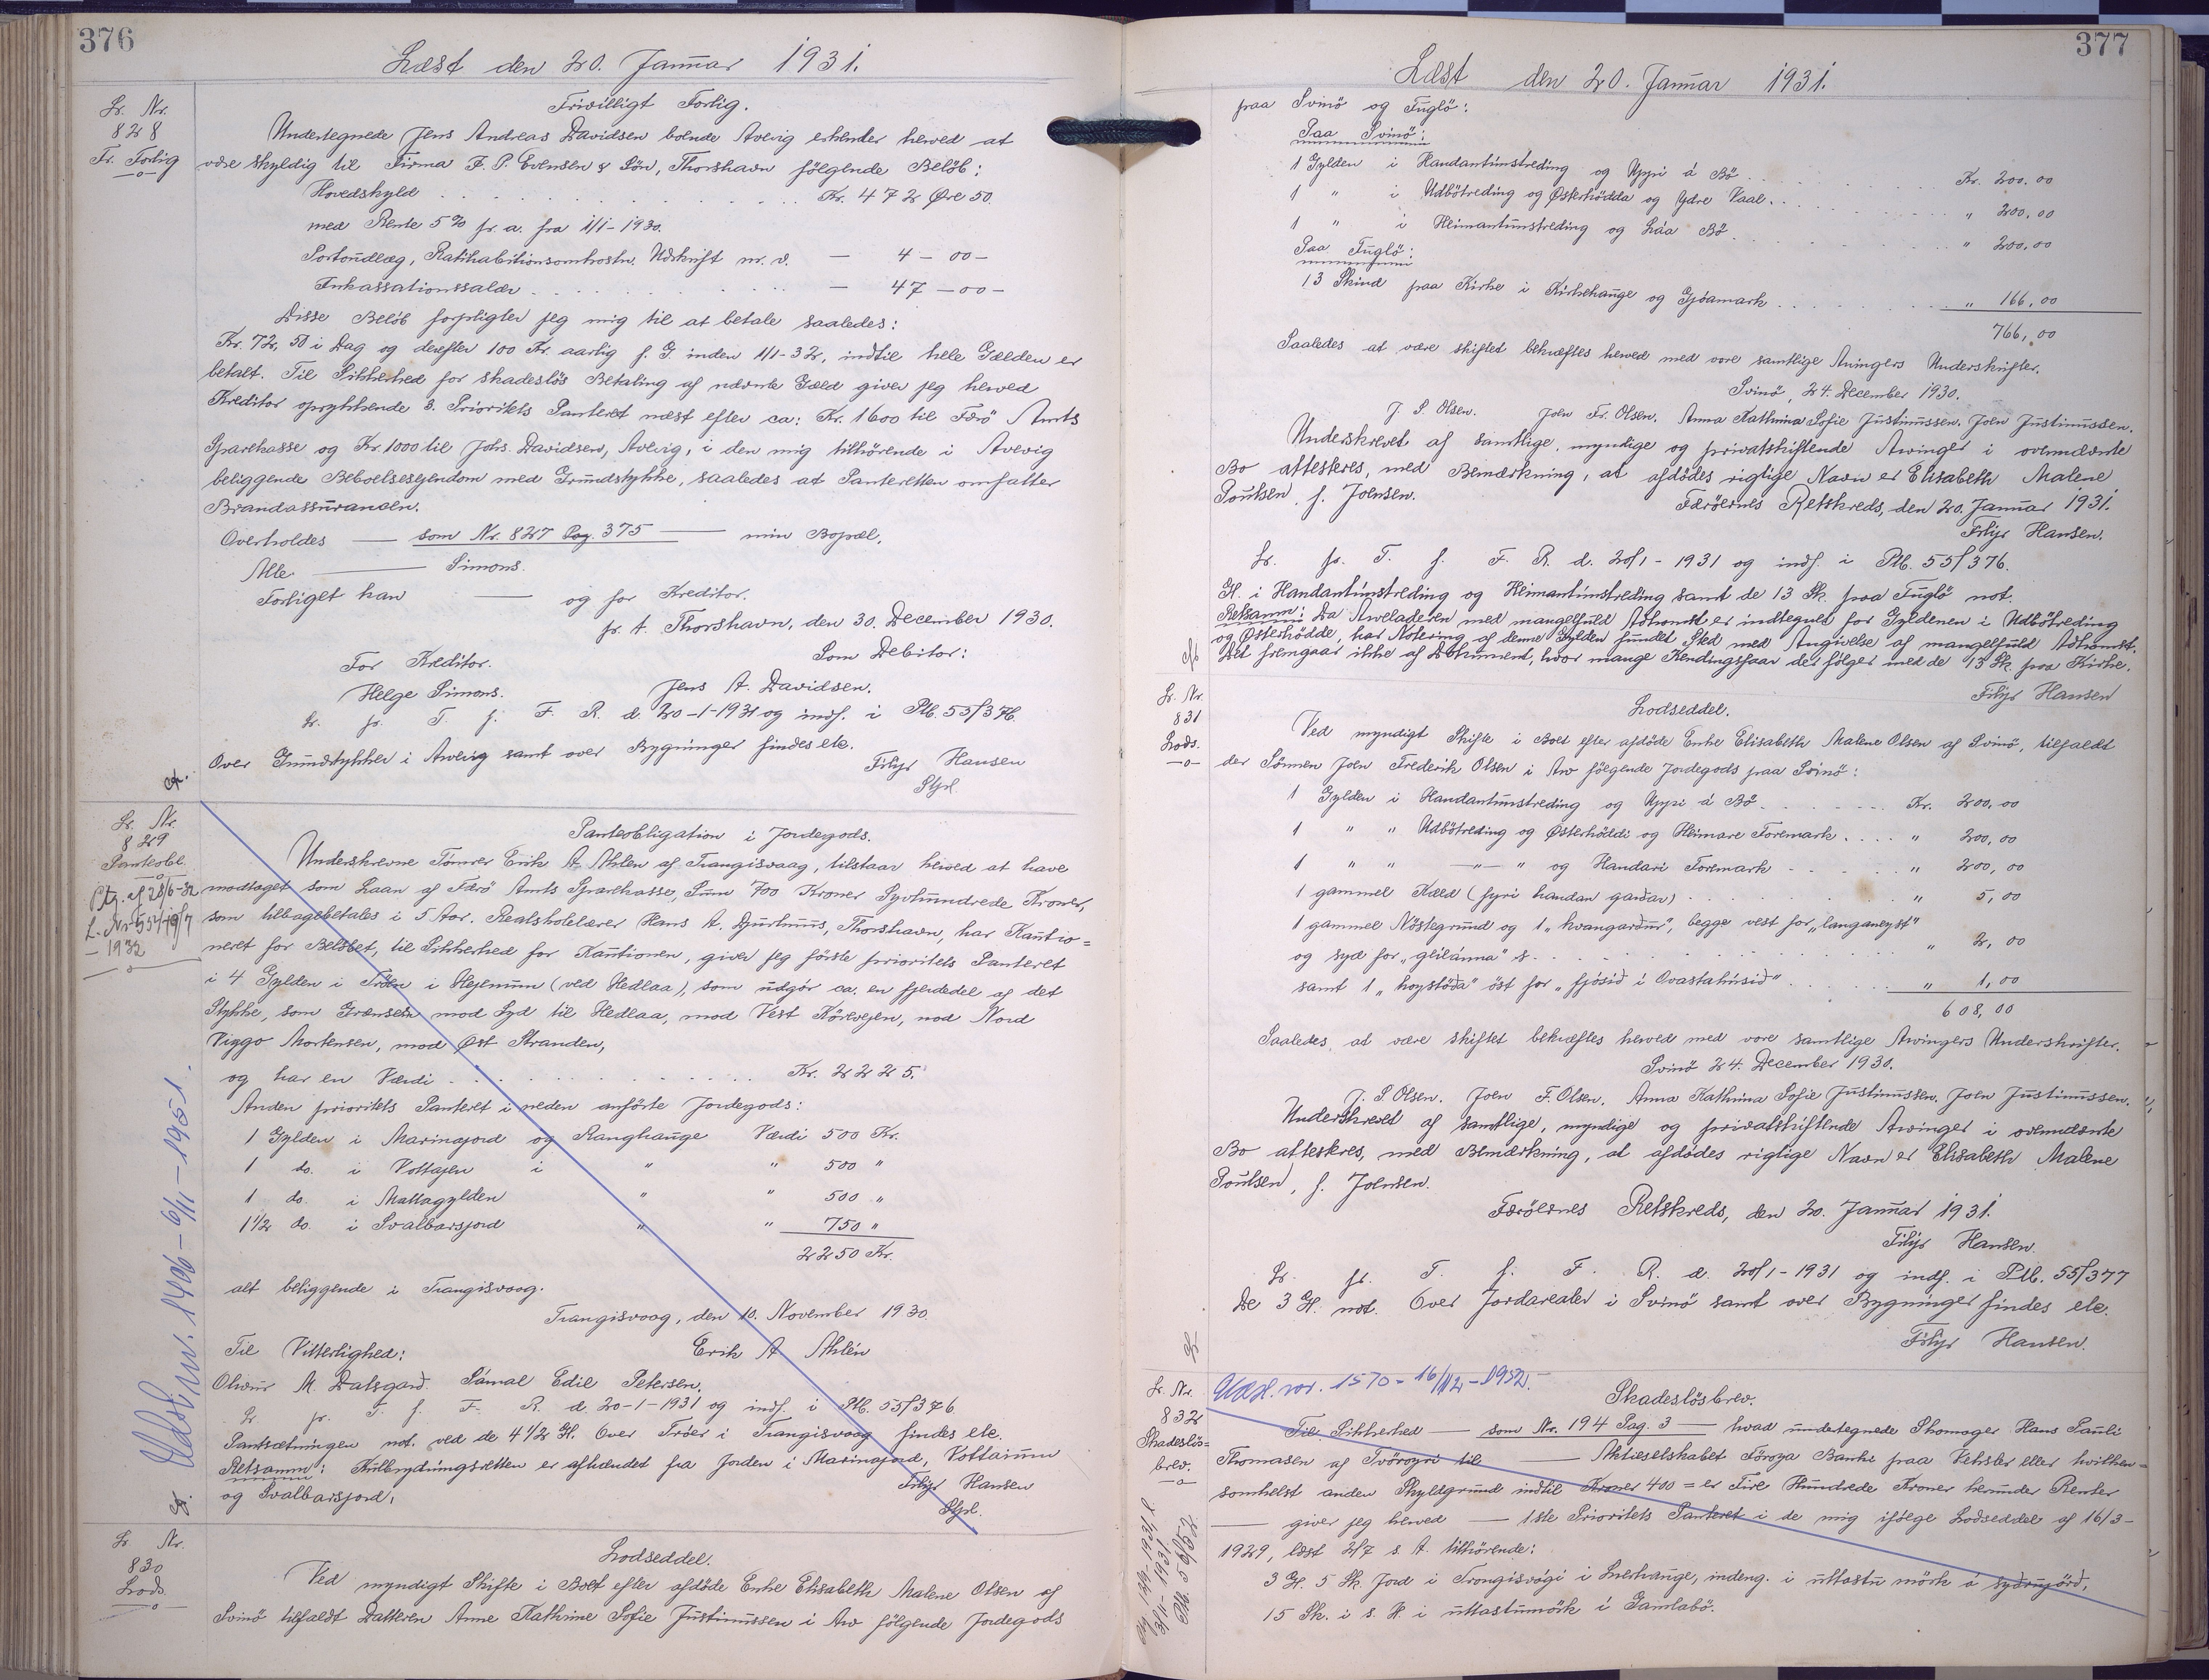 376
Læst den 20. Januar 1931.
Lr. Nr.
828
Fr. Forlig
Frivilligt Forlig.
Undertegnede Jens Andreas Davidsen boende Avevig erkender herved at
være skyldig til Firma F. P. Evensen & Sön, Thorshavn fölgende Belöb:
Hovedskyld . . . Kr. 472 Øre 50.
med Rente 5% pr. a. fra 1/1-1930.
Portoudlæg, Ratihabitionsomkostn. Udskrift m.v. — 4 — 00 —
Inkassationssalær . . . — 47 — 00 —
Disse Belöb forpligter jeg mig til at betale saaledes:
Kr. 72,50 i Dag og derefter 100 Kr. aarlig f. G. inden 1/1-32, indtil hele Gælden er
betalt. Til Sikkerhed for skadeslös Betaling af nævnte Gæld giver jeg herved
Kreditor oprykkende 3. Prioritets Panteret næst efter ca: Kr. 1600 til Færö Amts
Sparekasse og Kr. 1000 til Johs. Davidsen, Avevig, i den mig tilhörende i Avevig
beliggende Beboelsesejendom med Grundstykke, saaledes at Panteretten omfatter
Brandassurancen.
Overholdes — som Nr. 827 Pag. 375 — min Bopæl.
Alle — Simons.
Forliget kan — og for Kreditor.
p. t. Thorshavn, den 30. December 1930.
For Kreditor. Som Debitor:
Helge Simons. Jens A. Davidsen.
Lr. pr. T. f. F. R. d. 20-1-1931 og indf. i Ptb. 55/376.
Over Grundstykker i Avevig samt over Bygninger findes etc.
Filip Hansen
Lr. Nr.
829
Panteobl.
Ptg. af 28/6-32
1932
Udsl. nr. 1406 - 6/11 - 1951.
Panteobligation i Jordegods.
Underskrevne Tömrer Erik A. Ahlen af Trangisvaag, tilstaar herved at have
modtaget som Laan af Færö Amts Sparekasse, Sum 700 Kroner Syvhundrede Kroner,
som tilbagebetales i 5 Aar. Realskolelærer Hans A. Djurhuus, Thorshavn, har Kautio=
neret for Belöbet, til Sikkerhed for Kautionen, giver jeg förste prioritets Panteret
i 4 Gylden i Tröen i Hejenum (ved Hedlaa), som udgör ca. en fjerdedel af det
Stykke, som Grænser mod Syd til Hedlaa, mod Vest Körevejen, mod Nord
Viggo Mortensen, mod Øst Stranden,
og har en Værdi . . . Kr. 2225.
Anden prioritets Panteret i neden anförte Jordegods:
1 Gylden i Marinajord og Ranghauge Værdi 500 Kr.
1 do. i Vottajen i " " 500 "
1 do. i Mattagylden " " 500 "
1 1/2 do. i Svalbarsjord " " 750 "
2250 Kr.
alt beliggende i Trangisvaag.
Trangisvaag, den 10. November 1930.
Til Vitterlighed: Erik A Ahlén
Olivur M. Dalsgard. Sámal Edil Petersen.
Lr. pr. T. f. F. R. d. 20-1-1931 og indf. i Ptb. 55/376
Pantsætningen not. ved de 4 1/2 Gl. Over Tröer i Trangisvaag findes etc.
Retsanm: Kulbrydningsretten er afhændet fra Jorden i Marinajord, Vottaium
og Svalbarsjord.
Filip Hansen
Lr. Nr.
830
Lods.
Lodseddel.
Ved myndigt Skifte i Boet efter afdöde Enke Elisabeth Malene Olsen af
Svinö tilfaldt Datteren Anne Kathrine Sofie Justinussen i Arv fölgende Jordegods
377
Læst den 20. Januar 1931.
paa Svinö og Fuglö:
Paa Svinö:
1 Gylden i Handantúnstreding og Uppi á Bö . . . Kr. 200.00
1 " i Udbötreding og Østerhödda og Ydre Vaal . . . " 200.00
1 " i Heimantúnstreding og Láa Bö . . . " 200.00
Paa Fuglö:
13 Skind paa Kirke i Kirkehauge og Gjóamark . . . " 166,00
766,00
Saaledes at være skiftet bekræftes herved med vore samtlige Arvingers Underskrifter.
Svinö, 24. December 1930.
J. S. Olsen. Joen Fr. Olsen. Anna Kathrina Sofie Justinussen. Joen Justinussen.
Underskrevet af samtlige, myndige og privatskiftende Arvinger i ovennævnte
Bo attesteres, med Bemærkning, at afdödes rigtige Navn er Elisabeth Malene
Poulsen, f. Joensen. Færöernes Retskreds, den 20. Januar 1931.
Filip Hansen.
Lr. pr. T. f. F. R. d. 20/1-1931 og indf. i Ptb. 55/376.
Gl. i Handantúnstreding og Heimantúnstreding samt de 13 Sk. paa Fuglö not.
Retsanm: Da Arveladeren med mangelfuld Adkomst er indtegnet for Gyldenen i Udbötreding
og Österhödde, har Notering af denne Gylden fundet Sted med Angivelse af mangelfuld Adkomst.
Det fremgaar ikke af Dokument, hvor mange Kendingsfaar der fölger med de 13 Sk. paa Kirke.
Filip Hansen
Lr. Nr.
831
Lods.
Lodseddel.
Ved myndigt Skifte i Boet efter afdöde Enke Elisabeth Malene Olsen af Svinö, tilfaldt
der Sönnen Joen Frederik Olsen i Arv fölgende Jordegods paa Svinö:
1 Gylden i Handantúnstreding og Uppi á Bö . . . Kr. 200,00
1 " " Udbötreding og Österhöddi og Heimare Foremark . . . " 200,00
1 " " — " — " og Handari Foremark . . . " 200,00
1 gammel Kæld (fyri handan gardar) . . . " 5,00
1 gammel Nöstegrund og 1 "hvangardur", begge vest for "langaneyst"
og syd for "geilánna" s . . . " 2,00
samt 1 "hoystöda" öst for "fjósid i Ovastahúsid" . . . " 1,00
608,00
Saaledes at være skiftet bekræftes herved med vore samtlige Arvingers Underskrifter.
Svinö 24. December 1930.
J. S Olsen. Joen F. Olsen. Anna Kathrina Sofie Justinussen. Joen Justinussen.
Underskrevet af samtlige, myndige og privatskiftende Arvinger i ovennævnte
Bo attesteres, med Bemærkning, at afdödes rigtige Navn er Elisabeth Malene
Poulsen, f. Joensen.
Færöernes Retskreds, den 20. Januar 1931.
Filip Hansen.
Lr. pr. T. f. F. R. d. 20/1-1931 og indf. i Ptb. 55/377
De 3 Gl. not. Over Jordarealer i Svinö samt over Bygninger findes etc.
Filip Hansen.
Lr. Nr.
832
Skadeslös=
brev.
Udsl. nr. 1570 - 16/12 - 1952.
Skadeslösbrev.
Til Sikkerhed — som Nr. 194 Pag. 3 — hvad undertegnede Skomager Hans Pauli
Thomasen af Tvöroyri til — Aktieselskabet Föroya Banki paa Veksler eller hvilken=
somhelst anden Skyldgrund indtil Kroner 400 = er Fire Hundrede Kroner herunder Renter
— giver jeg herved — 1ste Prioritets Panteret i de mig ifölge Lodseddel af 16/3-
1929, læst 2/7 s. A. tilhörende:
3 Gl. 5 Sk. Jord i Trongisvági i Snerhauge, indeng. i uttastu mörk á sydrugörd,
15 Sk. i s. H. i uttastumörk í Gamlabö.